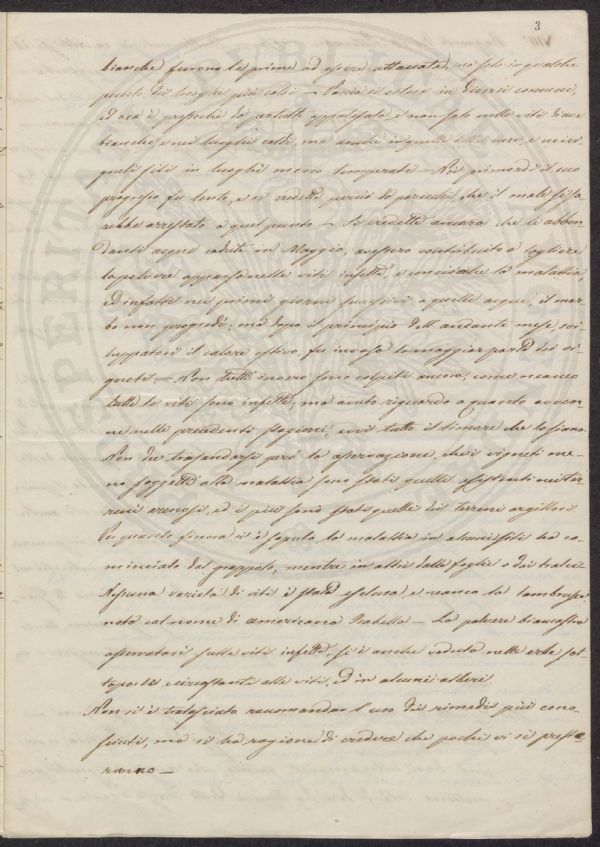 3
bianche furono le prime ad essere attaccate, ma solo in qualche
parte dei luoghi più caldi — Poscia si estese in diversi comuni,
ed ora è pressochè da pertutto appalesata, e non solo nelle viti di uve
bianche, e nei luoghi caldi, ma anche in quelle delle nere, e nei vi-
gneti siti in luoghi meno temperati — Nei primordi il suo
progresso fu lento, e si credette perciò da parecchi che il male si sa-
rebbe arrestato a quel punto — Si credette ancora che le abbon-
danti acque cadute in Maggio, avessero contribuito a togliere
la polvere apparsa nelle viti infette, e vincerle la malattia,
ed infatti nei primi giorni a quelle acque, il mor-
bo non progredì; ma dopo il principio dell'andante mese, svi-
luppatosi il calore estivo, fu invasa la maggior parte dei vi-
gneti — Non tutti invero sono colpiti ancora, come neanco
tutte le viti sono infette, ma avuto riguardo a quanto avven-
ne nelle precedenti stagioni, evvi tutto il timore che lo siano.
Non dee tralasciarsi però la osservazione, che i vigneti me-
no soggetti alla malattia sono stati quelli esistenti nei ter-
reni arenosi, ed il più sono stati quelli dei terreni argillosi.
Per quanto finora si è saputo, la malattia in alcuni siti ha co-
minciato dal grappolo, mentre in altri dalle foglie o dai tralci.
Nessuna varietà di viti è stata esclusa, e neanco la lambrusca
nota col nome di americana Isabella — La polvere biancastra
osservatasi sulle viti infette, si è anche veduta nelle erbe sot-
toposte e circostanti alle viti, ed in alcuni alberi.
Non si è tralasciato raccomandare l'uso dei rimedii più cono-
sciuti, ma si ha ragione di credere che pochi vi si preste-
ranno —